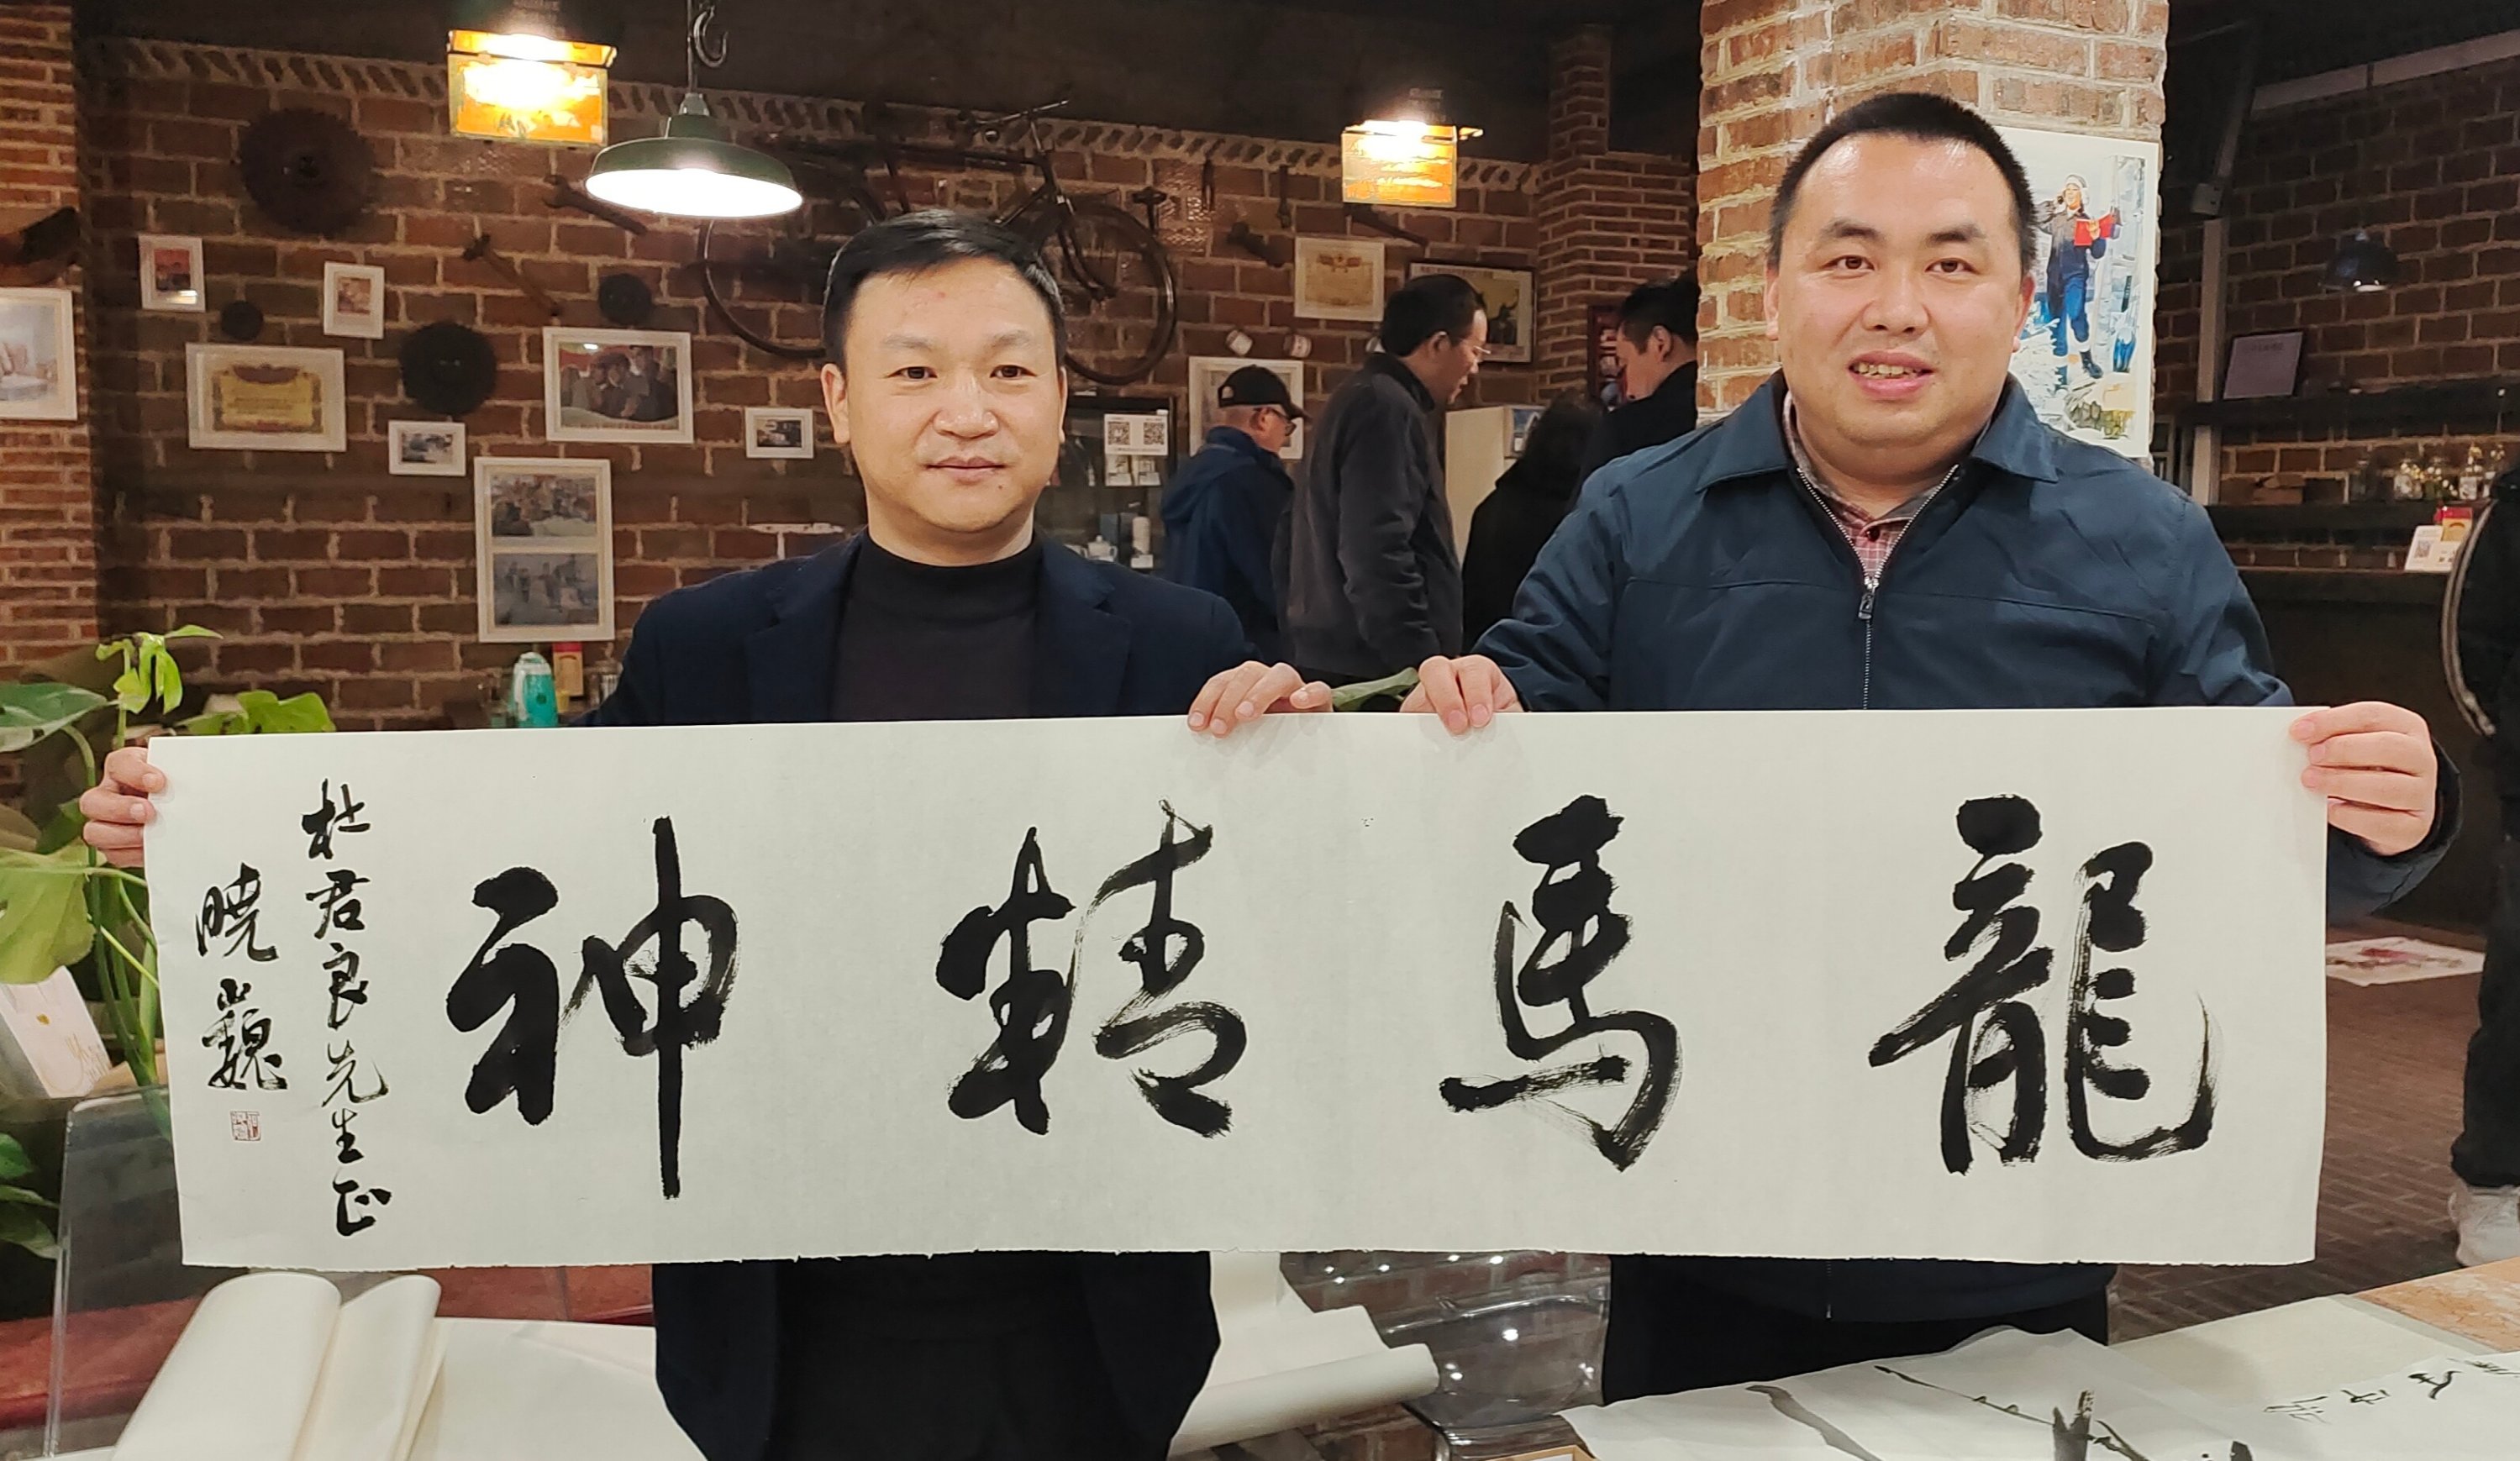 龍馬精神
杜君良先生正
曉巍